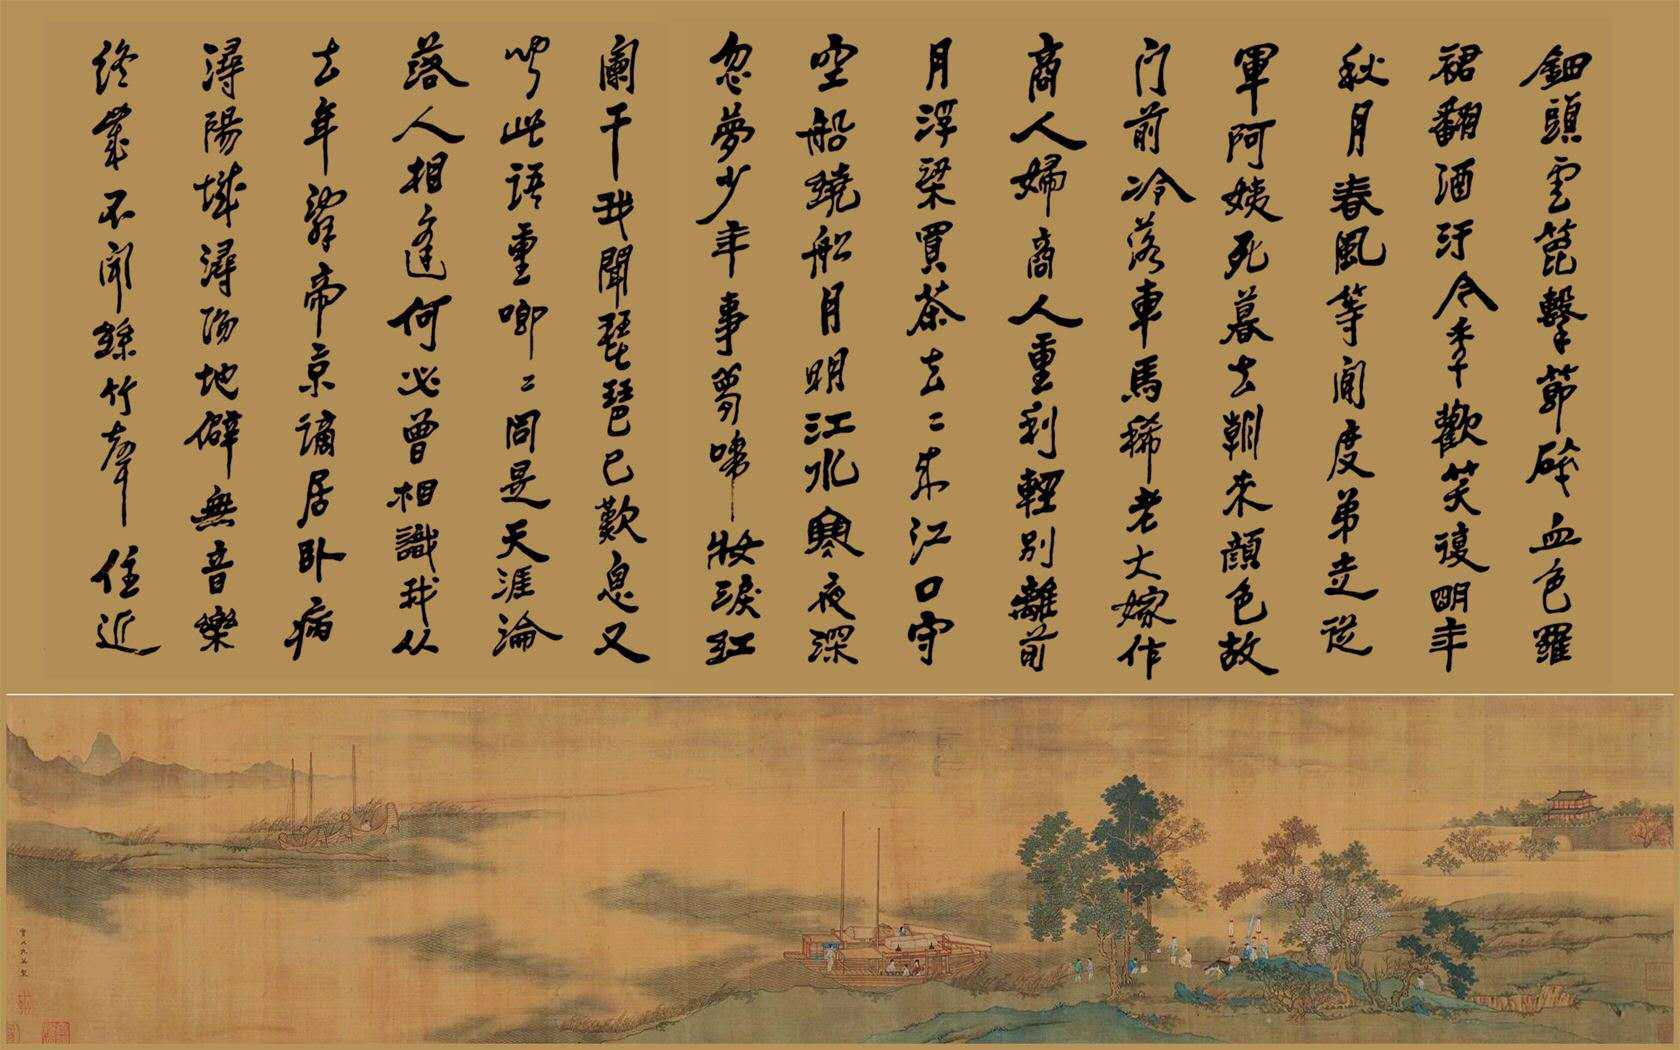 鈿頭雲篦擊節碎血色羅
裙翻酒汙今年歡笑復明年
秋月春風等閒度弟走從
軍阿姨死暮去朝來顏色故
门前冷落車馬稀老大嫁作
商人婦商人重利輕別離前
月浮梁買茶去〻来江口守
空船遶船月明江水寒夜深
忽夢少年事夢啼妝淚紅
闌干我聞琵琶已歎息又
聞此語重唧〻同是天涯淪
落人相逢何必曾相識我从
去年辭帝京謫居卧病
潯陽城潯陽地僻無音樂
終歲不聞絲竹聲住近
實父仇英製